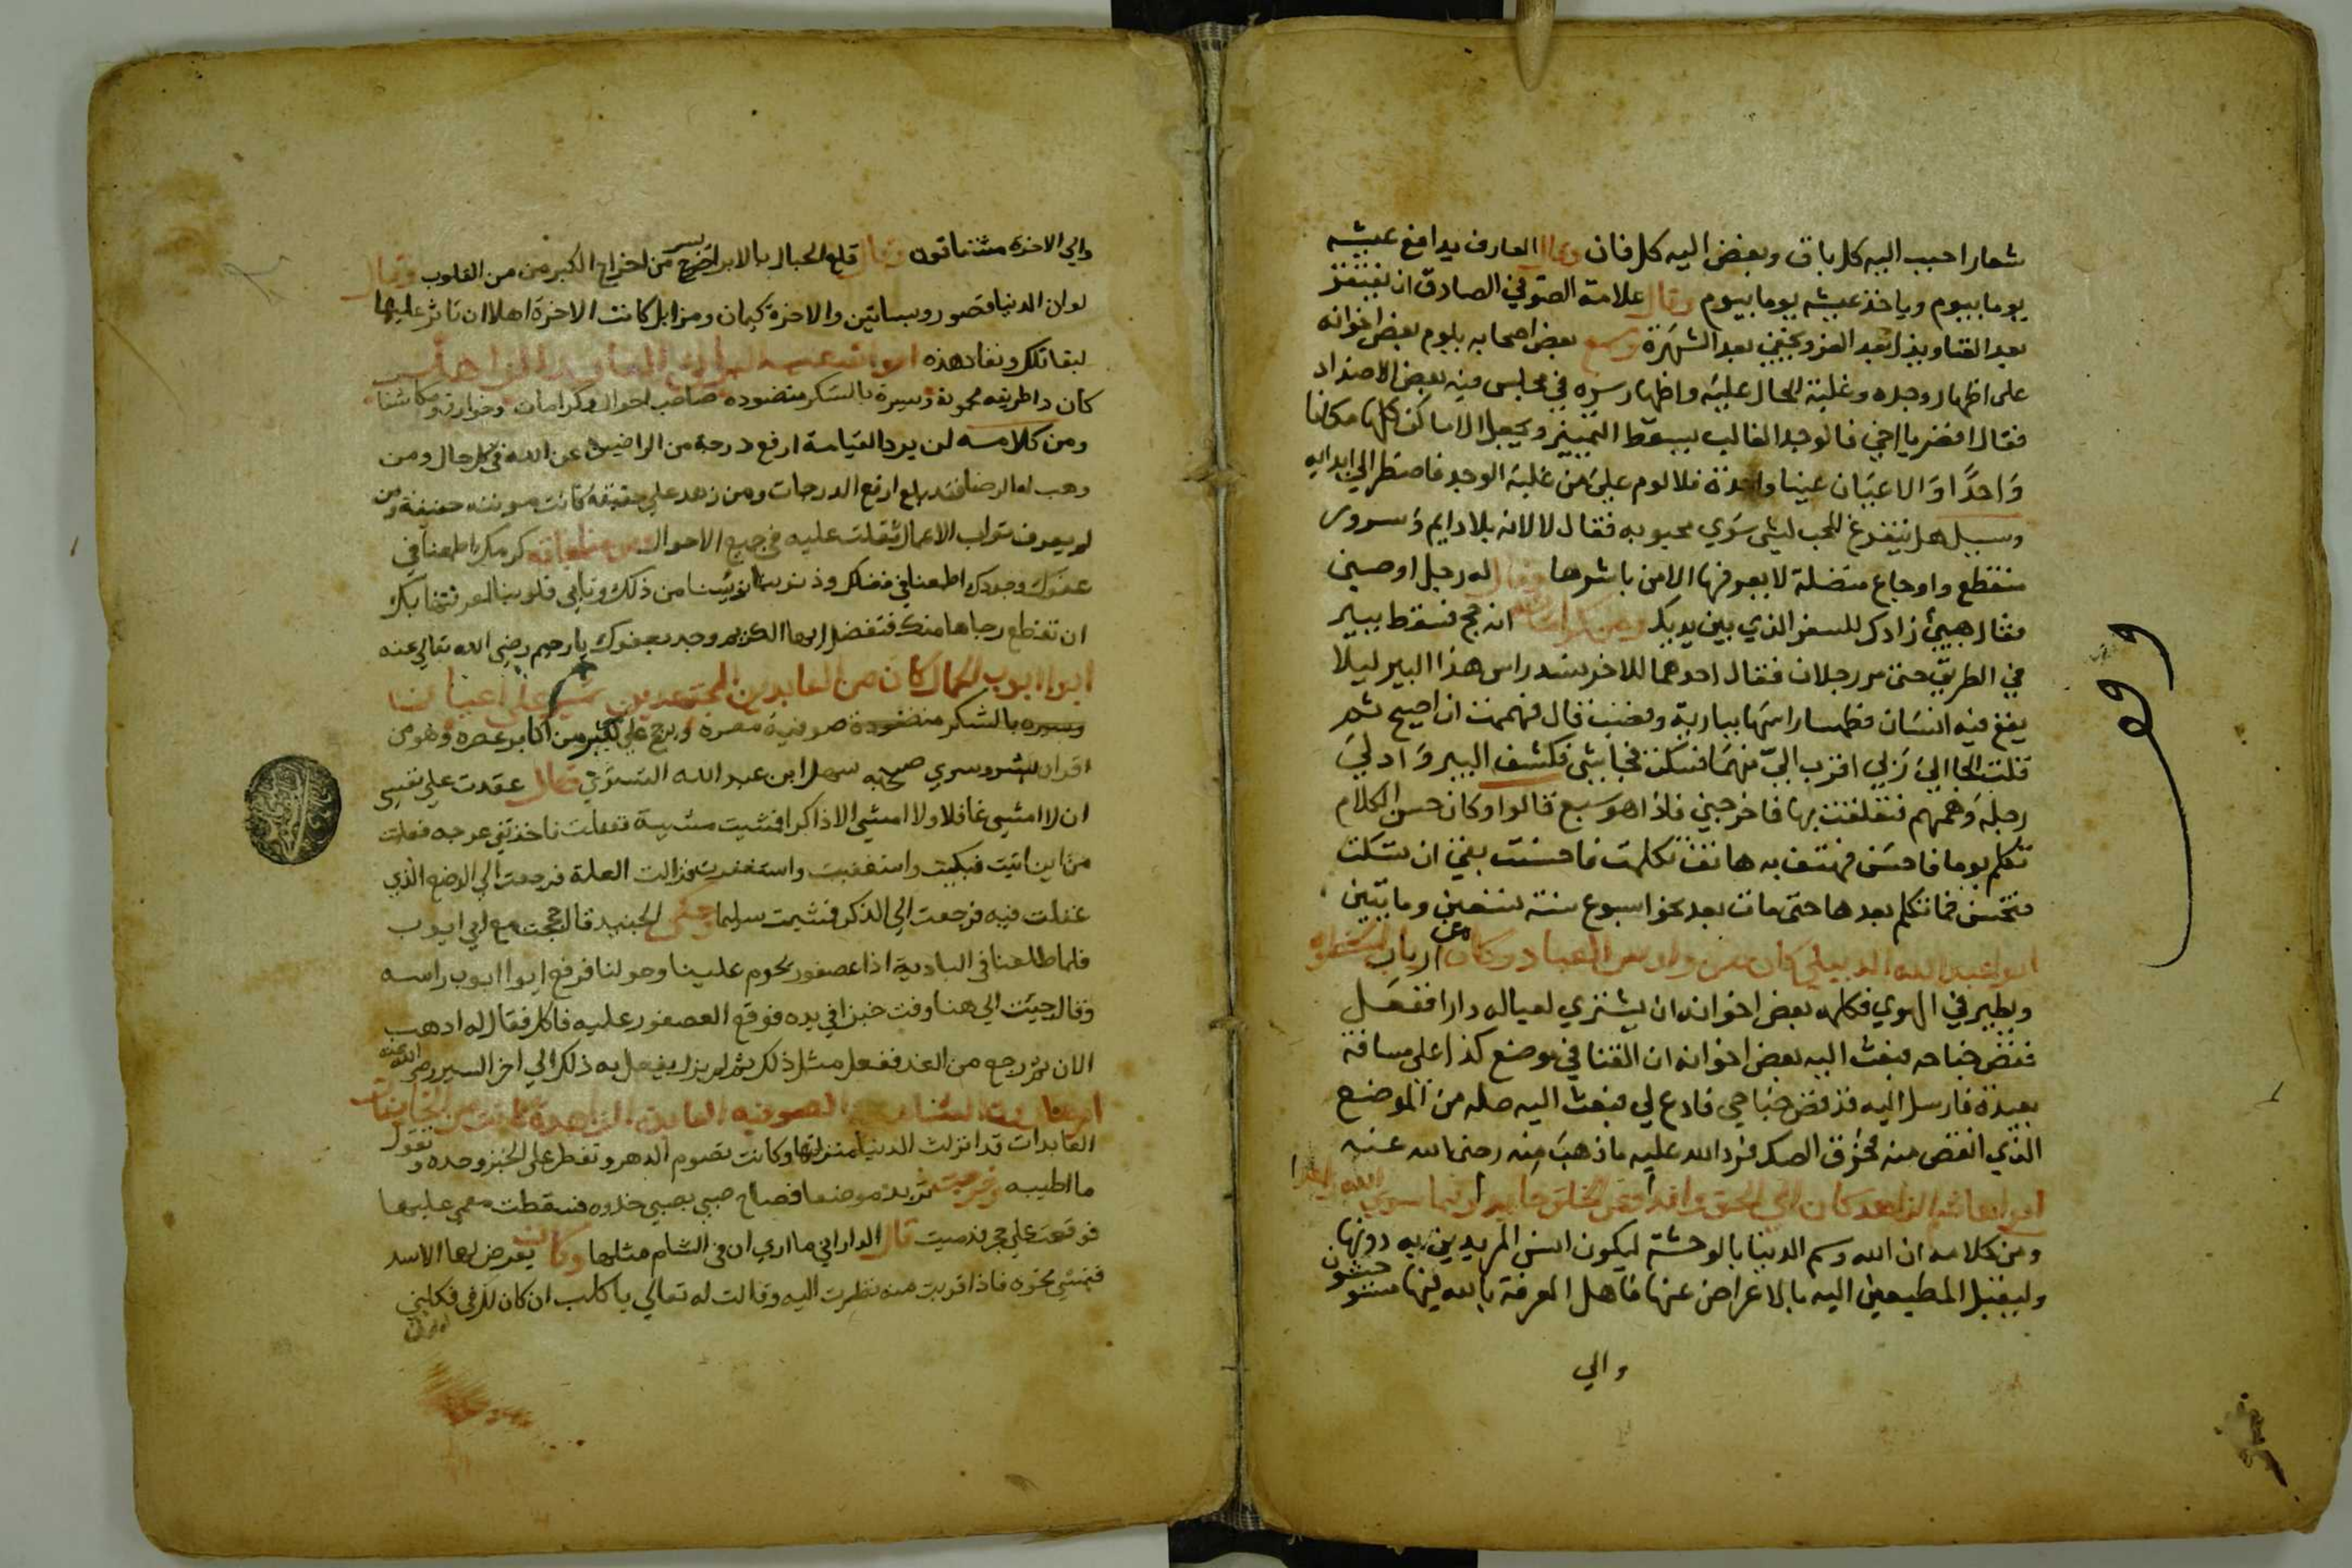 شعارا حبب اليه كل باق وبغض اليه كل فان وقال العارف يدافع عيشه
يوما بيوم وياخذ عيشه يوما بيوم وقال علامة الصوفي الصادق ان يفتقر
بعد الغنا ويذل بعد العز ويختفي بعد الشهرة وسمع بعض اصحابه يلوم بعض اخوانه
على اظهار وجده وغلبة الحال عليه واظهار سره في مجلس فيه بعض الاضداد
فقال اقصر يا اخي فالوجد الغالب يسقط التمييز ويجعل الاماكن كلها مكانا
واحدا والاعيان عينا واحدة فلا لوم على من غلبه الوجد فاضطر الى ابدايه
وسيل هل يتفرغ المحب لشي سوي محبوبه فقال لا لانه بلا دايم وسرور
منقطع واوجاع متصلة لا يعرفها الا من باشرها وقال له رجل اوصيني
فقال هيئ زادك للسفر الذي بين يديك ومن كراماته انه حج فسقط ببير
في الطريق حتى مر رجلان فقال احدهما للاخر نسد راس هذا البير ليلا
يقع فيه انسان فطما راسها ببارية وقضب قال فهممت ان اصيح ثم
قلت الجا الي ربي اقرب الي منهما فسكت فجا شي فكشف البير وادلي
رجله وهمهم فتعلقت بها فاخرجني فاذا هو سبع قالوا وكان حسن الكلام
تكلم يوما فاحسن فهتف به هاتف تكلمت فاحسنت بقي ان تسكت
فتحسن فما تكلم بعدها حتى مات بعد نحو اسبوع سنة تسعين ومايتين
ابو عبد الله الديبلي كان من العباد وكان من ارباب
ويطير في الهوي فكلمه بعض اخوانه ان يشتري لعياله دارا ففعل
فقص جناحه فبعث اليه بعض اخوانه ان القنا في موضع كذا على مسافة
بعيدة فارسل اليه قد قص جناحي فادع لي فبعث اليه صله من الموضع
الذي انقص منه فخرق الصك فرد الله عليه ما ذهب منه رضي الله عنه
ابو هاشم الزاهد كان الى الحق وافدا وعن الخلق حايدا وفيما سوي الله زاهدا
ومن كلامه ان الله وسم الدنيا بالوحشة ليكون انس المريدين به دونها
وليقبل المطيعين اليه بالاعراض عنها فاهل المعرفة بالله فيها مستوحشون
والي
والي الاخرة مشتاقون وقال قلع الجبال بالابر ايسر من اخراج الكبر من القلوب وقال
لو ان الدنيا قصور وبساتين والاخرة كيمان ومزابل كانت الاخرة اهلا ان تاثر عليها
لبقا تلك ونفاد هذه ابو العابد الزاهد
كان ذا طريقه محمودة وسيرة بالشكر منضوده صاحب احوال وكرامات وخوارق ومكاشفات
ومن كلامه لن يرد القيامة ارفع درجة من الراضين عن الله في كل حال ومن
وهب له الرضا فقد بلغ ارفع الدرجات ومن زهد على حقيقة كانت مونته خفيفة ومن
لم يعرف ثواب الاعمال ثقلت عليه في جميع الاحوال ومن كرمك اطمعنا في
عفوك وجودك اطمعنا في فضلك وذنوبنا تؤيسنا من ذلك وتابي قلوبنا لمعرفتنا بك
ان تقطع رجاها منك فتفضل ايها الكريم وجد بعفوك يا رحيم رضي الله تعالى عنه
ابو ايوب الحمال كان من العابدين المجتهدين
وسيره بالشكر منضوده صوفية مصره ورجح على كثير من اكابر عصره وهو من
اقران بشر وسري صحبه سهل ابن عبد الله التستري قال عقدت على نفسي
ان لا امشي غافلا ولا امشي الا ذاكرا فمشيت مشية فغفلت فاخذتني عرجه فعلمت
من اين اتيت فبكيت واستغثت واستغفرت فزالت العلة فرجعت الى الموضع الذي
غفلت فيه فرجعت الى الذكر فمشيت سليما وحكى الجنيد قال حججت مع ابي ايوب
فلما طلعنا في البادية اذا عصفور يحوم علينا وحولنا فرفع ابو ايوب راسه
وقال جيت الي هنا وفت خبزا في يده فوقع العصفور عليه فاكل فقال له اذهب
الان ثم رجع من الغد ففعل مثل ذلك ثم لم يزل يفعل به ذلك الى اخر السير رضي الله عنه
الصوفيه العابدة الزاهدة كانت من الخايفات
العابدات قد انزلت الدنيا منزلتها وكانت تصوم الدهر وتفطر على الخبز وحده وتقول
ما اطيبه وخرجت تريد موضعا فصاح صبي بصبي خذوه فسقطت مغمى عليها
فوقعت على حجر فدميت قال الداراني ما اري ان في الشام مثلها وكانت يعرض لها الاسد
فتمشي نحوه فاذا قربت منه نظرت اليه وقالت له تعالى يا كلب ان كان لك رزق فكلني